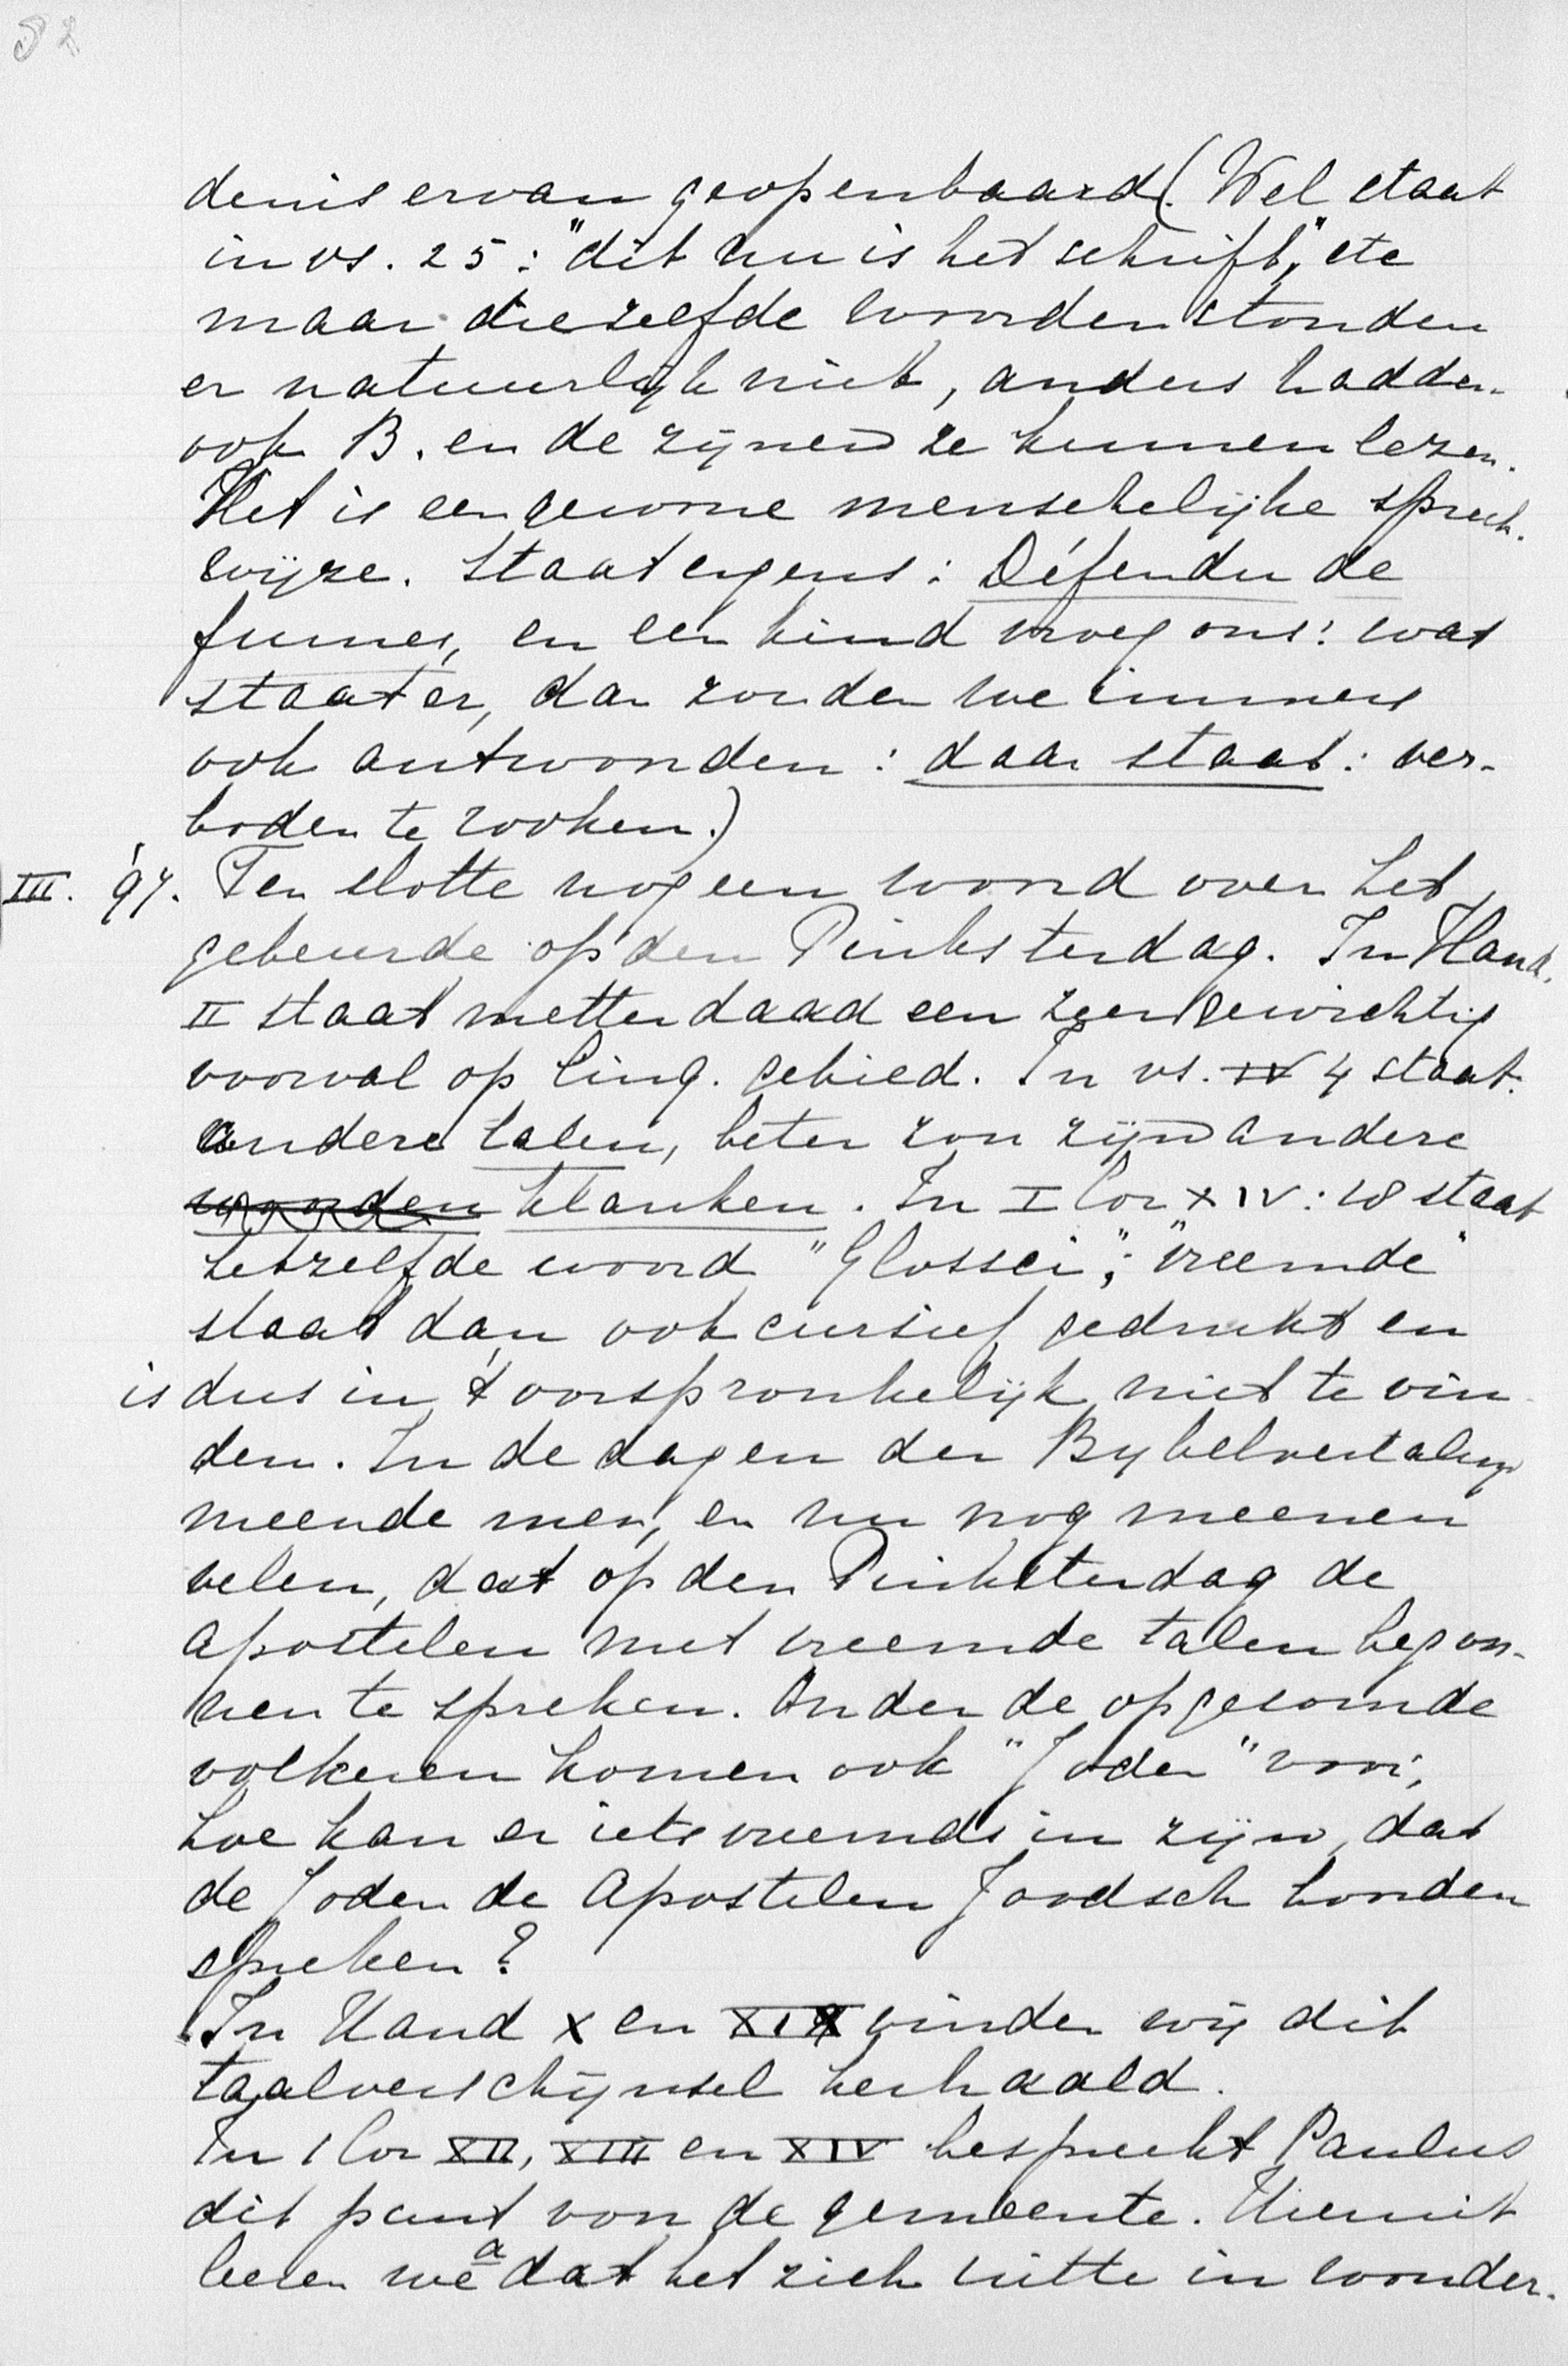 52
denis ervan geopenbaard. (Wel staat
in vs. 25: "dit nu is het schrift," etc
maar diezelfde woorden stonden
er natuurlijk niet, anders hadden
ook B. en de zijnen ze kunnen lezen.
Het is een gewone menschelijke spreek-
wijze. Staat ergens: Défendu de
fumer, en een kind vroeg ons: wat
staat er, dan zouden we immers
ook antwoorden: daar staat: ver-
boden te rooken.)
III. '97. Ten slotte nog een woord over het
gebeurde op den Pinksterdag. In Hand.
II staat metterdaad een zeer gewichtig
voorval op ling. gebied. In vs. IV 4 staat
andere talen, beter zou zijn andere
woorden klanken. In I Cor XIV: 18 staat
hetzelfde woord "Glossei"; "vreemde"
staat dan ook cursief gedrukt en
is dus in 't oorspronkelijk niet te vin-
den. In de dagen der Bybelvertaling
meende men, en nu nog meenen
velen, dat op den Pinksterdag de
Apostelen met vreemde talen begon-
nen te spreken. Onder de opgesomde
volkeren komen ook "Joden" voor;
hoe kan er iets vreemds in zijn, dat
de Joden de Apostelen Joodsch hoorden
spreken?
In Hand X en XIX vinden wij dit
taalverschijnsel herhaald.
In 1 Cor XII, XIII en XIV bespreekt Paulus
dit punt von de gemeente. Hieruit
leeren we a dat het zich uitte in wonder-